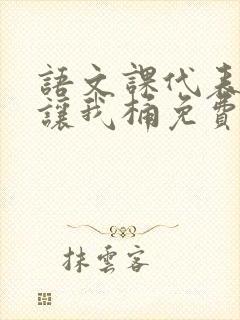 語文課代表
讓我桶免費
抹雲客